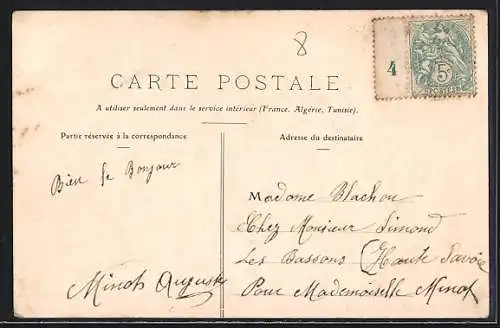 8
4
5c
CARTE POSTALE
A utiliser seulement dans le service intérieur (France, Algérie, Tunisie).
Partie réservée à la correspondance
Adresse du destinataire
Bien le Bonjour
Madame Blachon
Chez Monsieur Simond
Les Bassons (Haute Savoie
Pour Mademoiselle Minot
Auguste